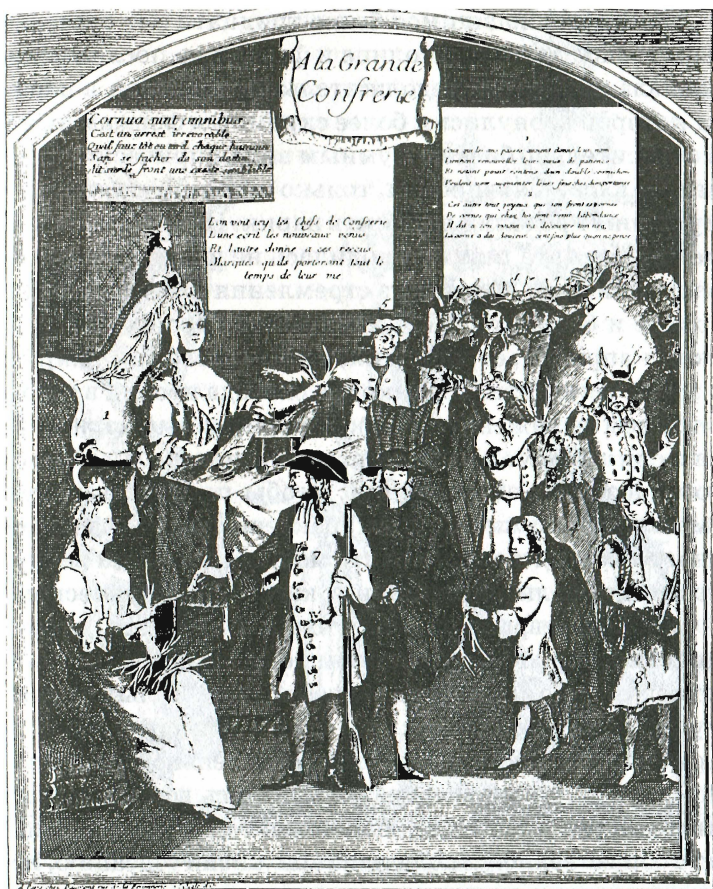 A la Grande
Confrerie
Cornua sunt omnibus
C'est un arrest irrevocable
Quil faut tôt ou tard chaque
Sans se facher de son destin
front une
L'on voit icy les Chefs de Confrerie
L'une ecrit les nouveaux venus
Et l'autre donne a ces recus
Marques qu'ils porteront tout le
temps de leur vie
Ceux qui les ans passés avoient donné leur nom
Viennent renouveller leurs vœux de patience
Et n'etant point contens d'un double cornichon
Veulent voir augmenter leurs
Cet autre tout joyeux que son front est orné
De cornes qui chez lui font venir l'abondance
Il dit a son
La corne a des douceurs cent fois plus quon ne pense
1
7
8
A Paris chez